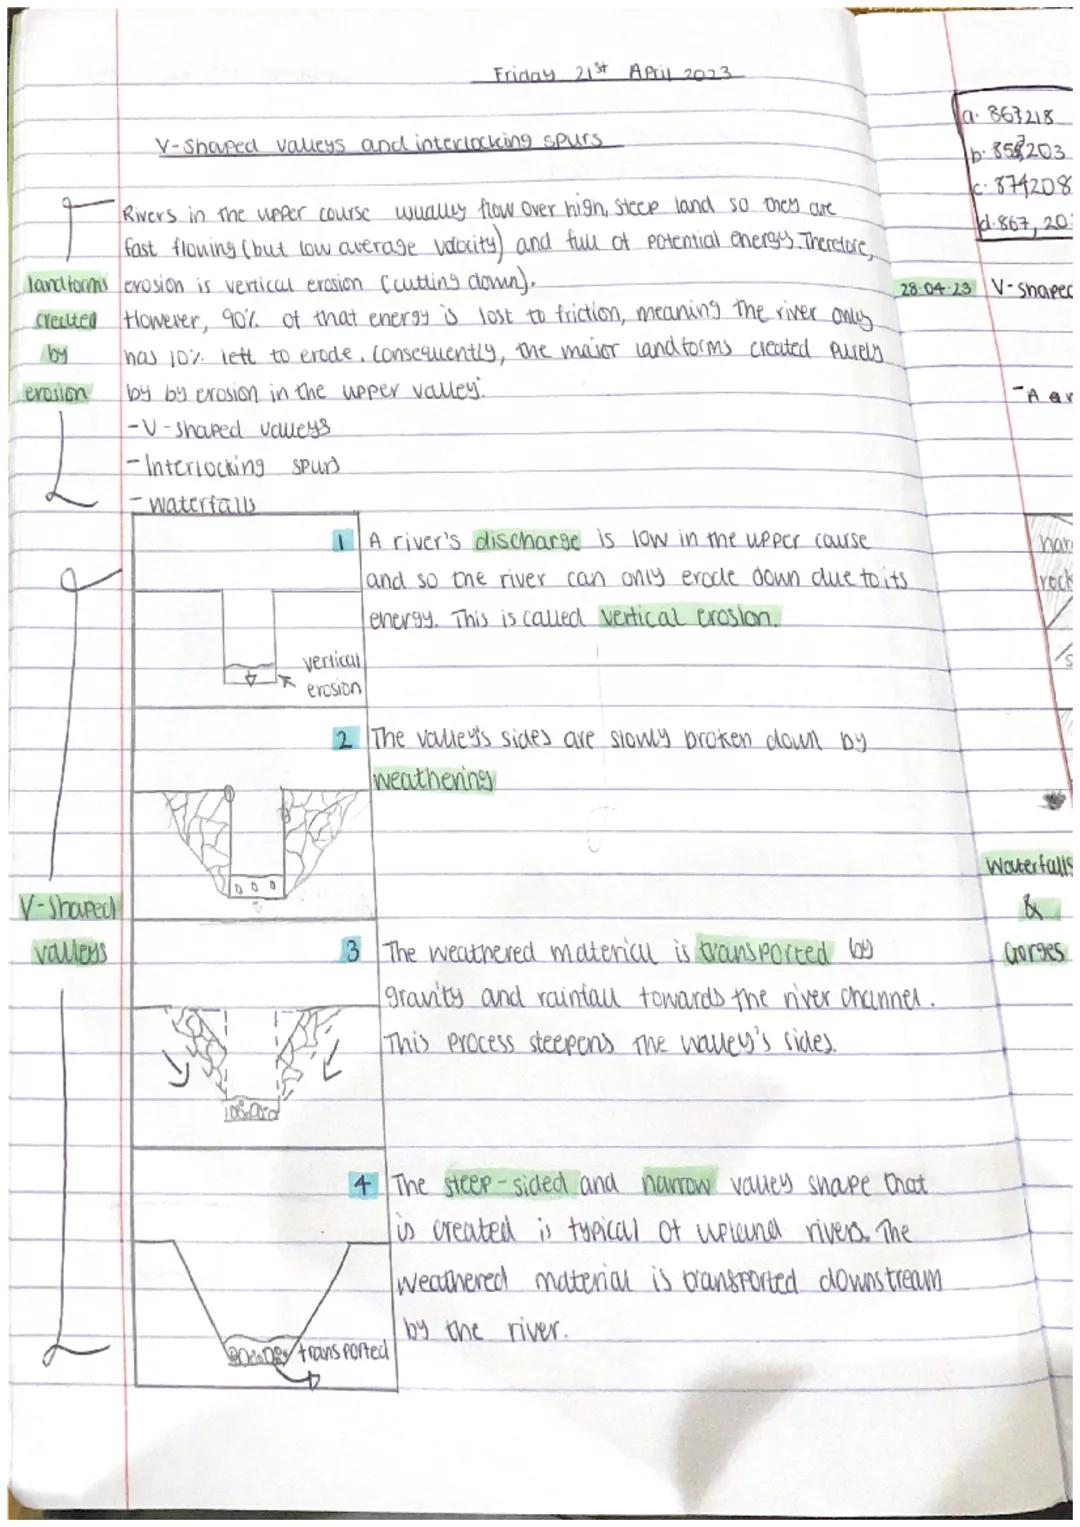 Friday 21st April 2023
V-Shaped valleys and interlocking spurs
Rivers in the upper course usually flow over high, steep land so they are
fast flowing (but low average velocity) and full of potential energy. Therefore,
erosion is vertical erosion (cutting down).
However, 90% of that energy is lost to friction, meaning the river only
has 10% left to erode. Consequently, the major landforms created purely
by by erosion in the upper valley:
-V-shaped valleys
-Interlocking spurs
-waterfalls
landforms
created
by
erosion
1 A river's discharge is low in the upper course
and so the river can only erode down due to its
energy. This is called vertical erosion.
vertical
erosion
2 The valley's sides are slowly broken down by
weathering
V-Shaped
valleys
3 The weathered material is transported by
gravity and rainfall towards the river channel.
This process steepens the valley's sides.
4 The steep-sided and narrow valley shape that
is created is typical of upland rivers. The
weathered material is transported downstream
by the river.
transported
a. 867218
b. 203
c. 874208
d. 867, 20
28.04.23 V-shaped
-A
rock
Waterfalls
&
Gorges